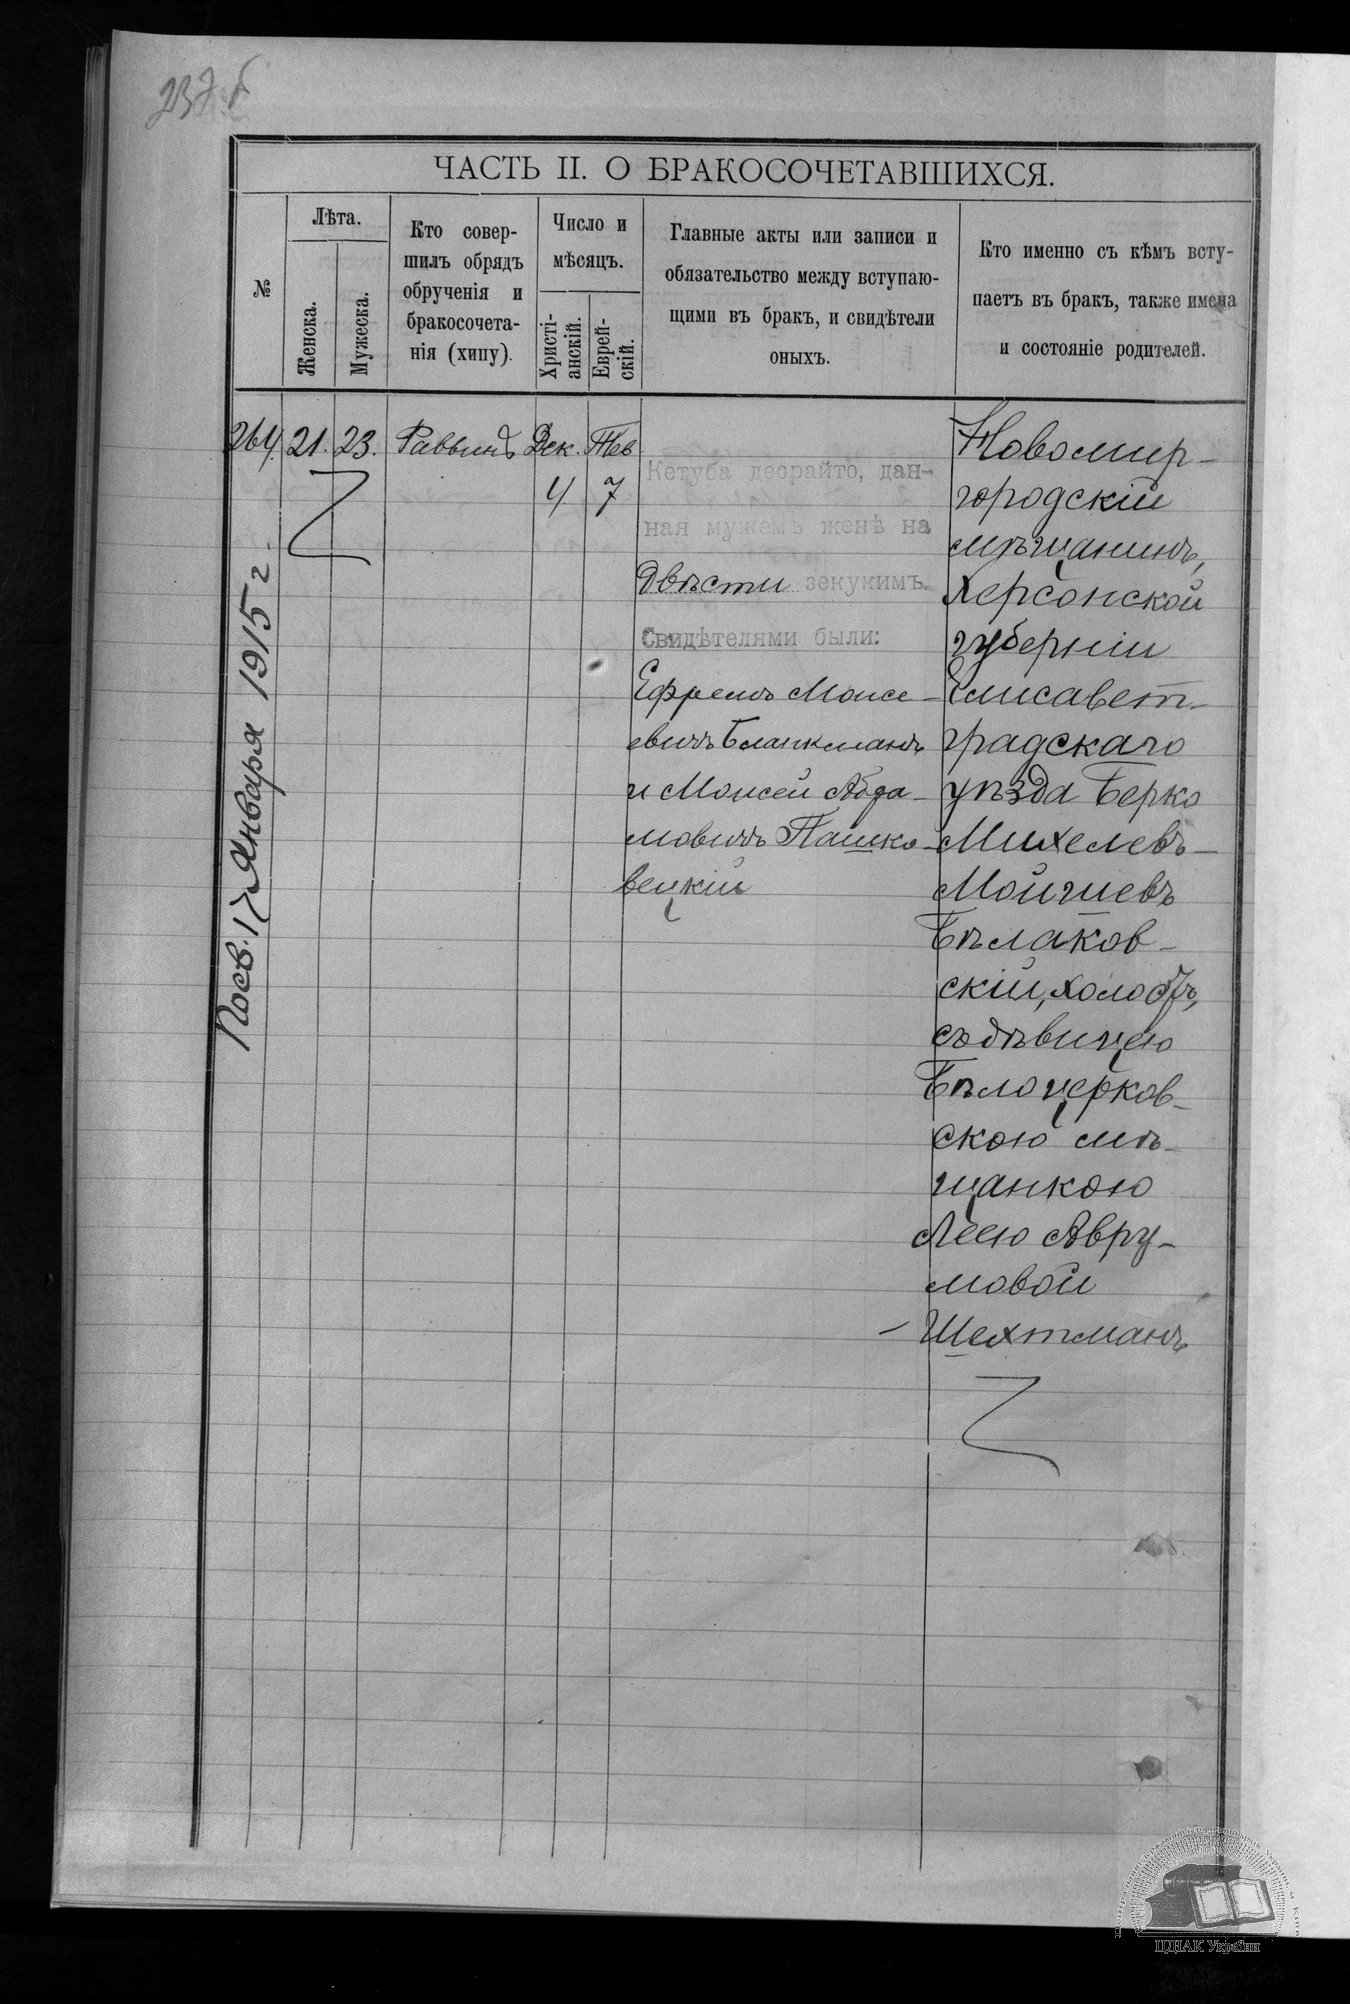 ЧАСТЬ II. О БРАКОСОЧЕТАВШИХСЯ.
№
Лѣта.
Женска.
Мужеска.
Кто совер-
шилъ обрядъ
обрученія и
бракосочета-
нія (хипу).
Число и
мѣсяцъ.
Христі-
анскій.
Еврей-
скій.
Главные акты или записи и
обязательство между вступаю-
щими въ брак, и свидѣтели
оныхъ.
Кто именно съ кѣмъ всту-
паетъ въ брак, также имена
и состояніе родителей.
264. 21. 23. Раввинъ Дек. Тев
4 7
Кетуба деорайто, дан-
ная мужемъ женѣ на
Двѣсти зекукимъ.
Свидѣтелями были:
Ефремъ Моисе-
евичъ Бланкманъ
и Моисей Абра-
мовичъ Пашко-
вецкій
Новомир-
городскій
мѣщанинъ,
Херсонской
губерніи
Елисавет-
градскаго
уѣзда Берко
Михелевъ-
Мойшевъ
Бѣлаков-
скій, холостъ,
съ дѣвицею
Бѣлоцерков-
скою мѣ-
щанкою
Леею Авру-
мовой
Шехтманъ
Посв. 17 Января 1915 г.
ЦДІАК України